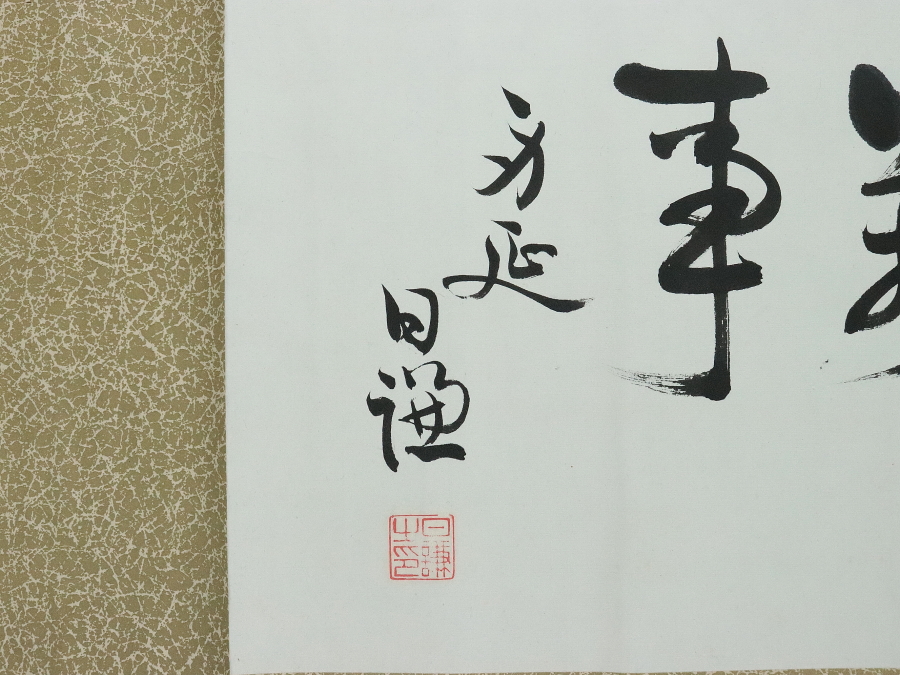 事
身延
日謙
日謙
之印